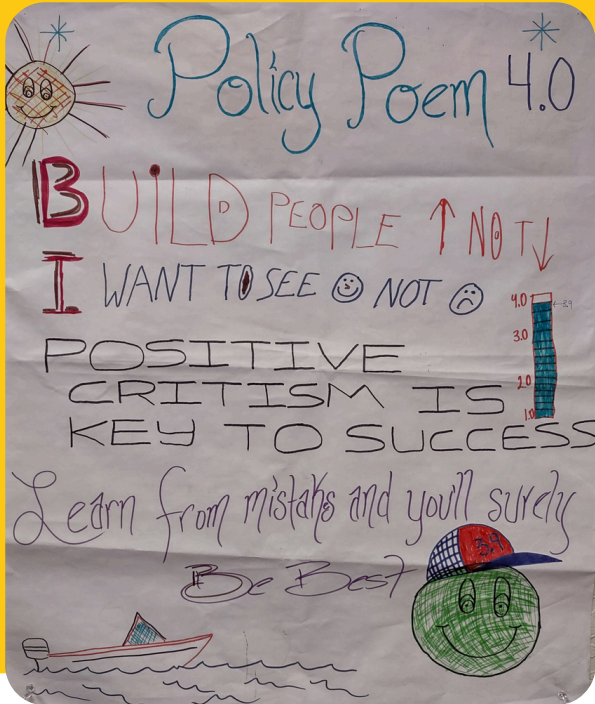 Policy Poem 4.0
BUILD PEOPLE ↑ NOT ↓
I WANT TO SEE ☺ NOT ☹
4.0
3.9
3.0
2.0
1.0
POSITIVE
CRITISM IS
KEY TO SUCCESS
Learn from mistaks and you'll surely
Be Best
3.9